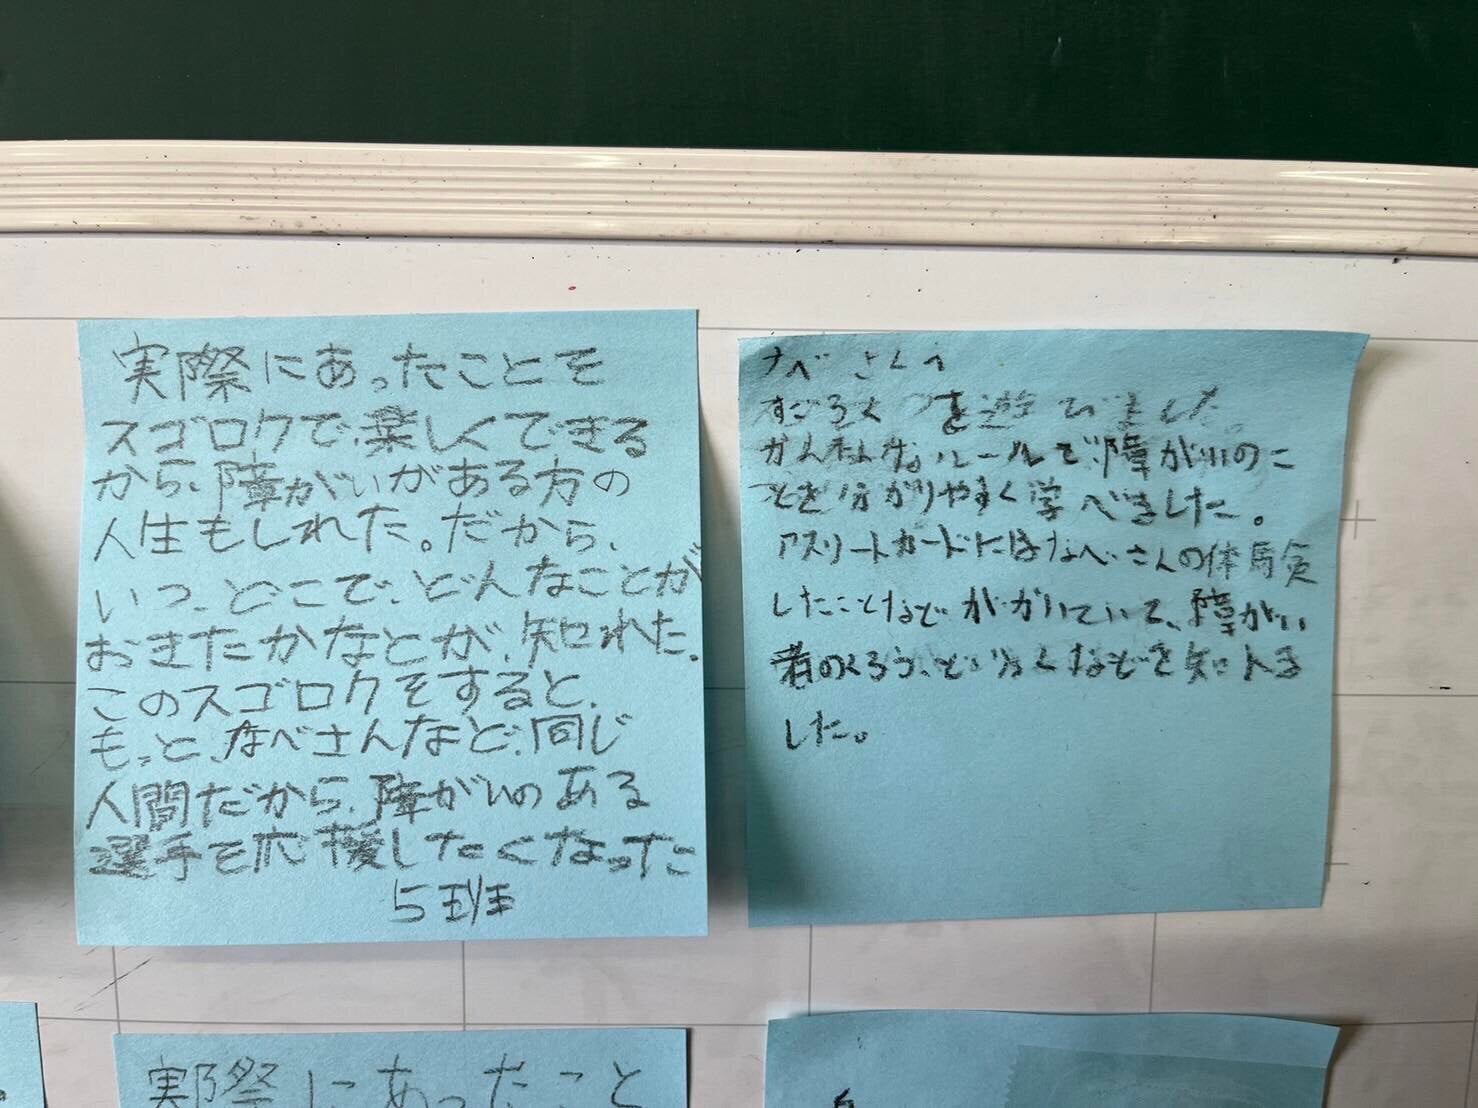 実際にあったことを
スゴロクで、楽しくできる
から、障がいがある方の
人生もしれた。だから、
いつ、どこで、どんなことが
おきたかなとが、知れた。
このスゴロクをすると、
もっと、なべさんなど、同じ
人間だから、障がいのある
選手を応援したくなった
5班
なべさんへ
すごろくを遊びました。
かんたんなルールで、障がいのこ
とを分かりやすく学べました。
アスリートカードにはなべさんの体験
したことなどがかいていて、障がい
者のくろう、どりょくなどを知れま
した。
実際にあったこと